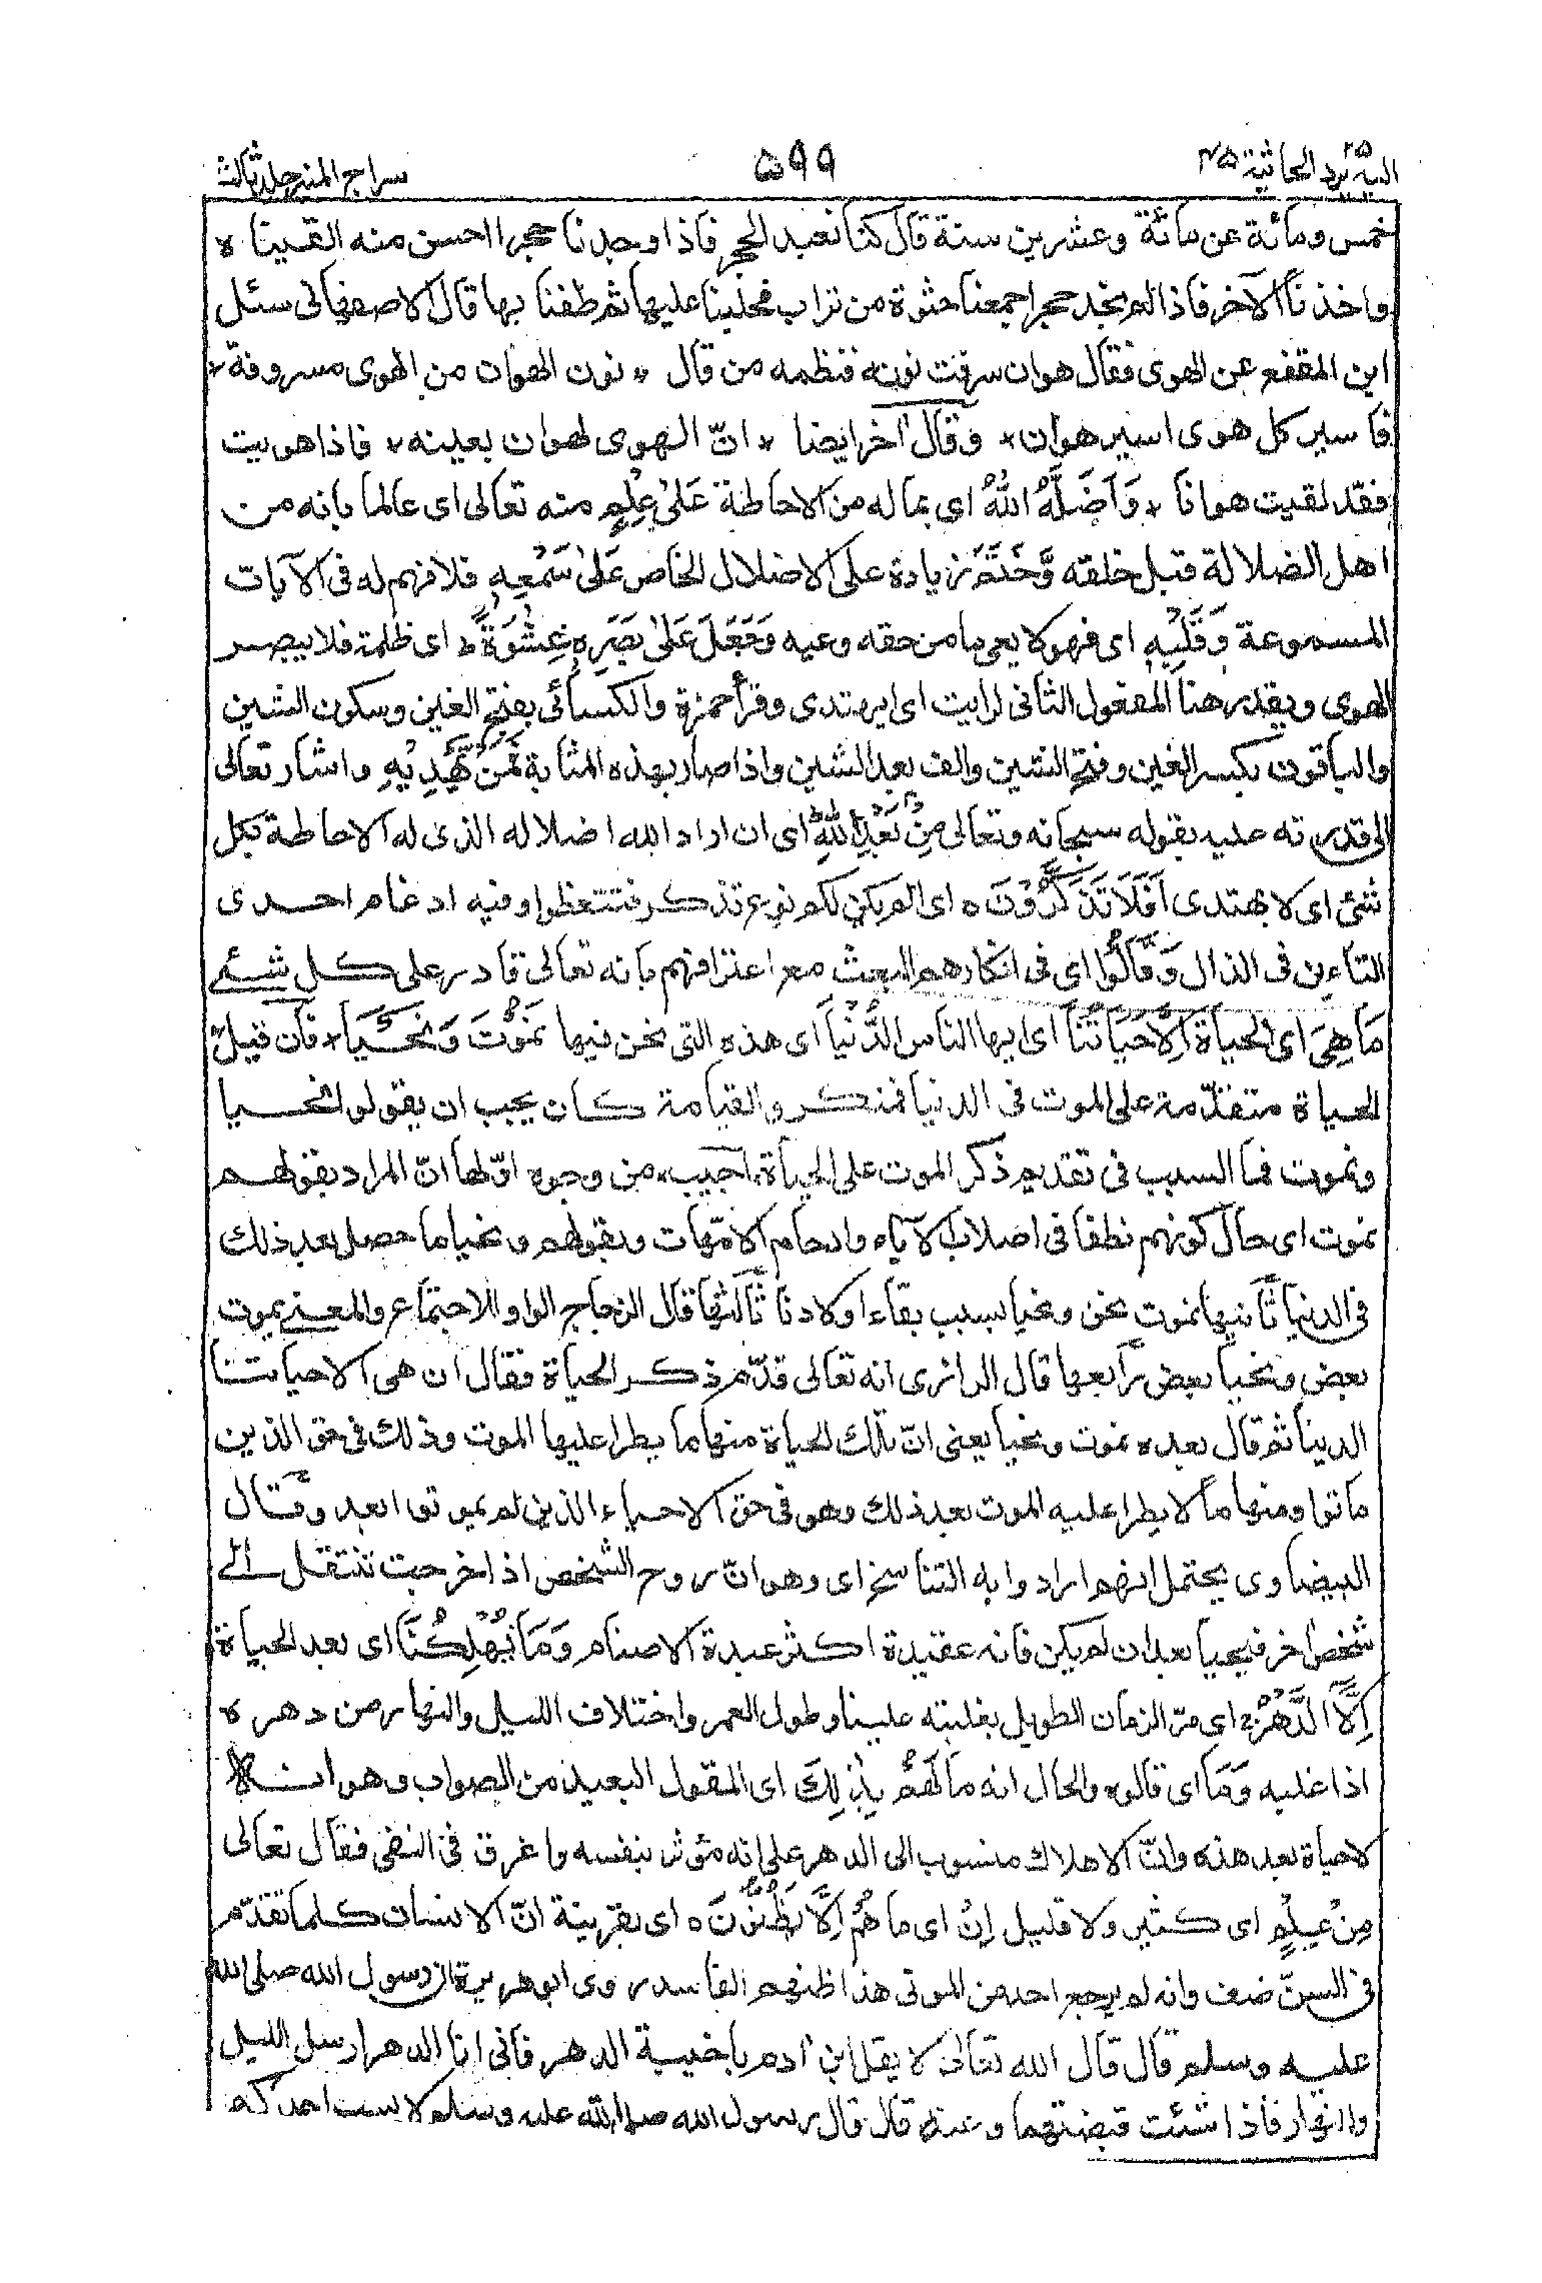 اليه يرد ٢٥ الجاثية ٤٥
٥٩٩
سراج المنير جلد ثالث
خمس ومائة عن مائة وعشرين سنة قال كنا نعبد الحجر فاذا وجدنا حجرا احسن منه القيناه
واخذنا الآخر فاذا لم نجد حجرا جمعنا حثوة من تراب فحلبنا عليها ثم طفنا بها قال الاصفهانى سئل
ابن المقفع عن الهوى فقال هوان سرقت نونه فنظمه من قال * نون الهوان من الهوى مسروقة *
فاسير كل هوى اسير هوان * وقال آخر ايضا * انّ الهوى لهوان بعينه * فاذا هويت
فقد لقيت هوانا * وَاَضَلَّهُ اللّٰهُ اى بماله من الاحاطة عَلٰى عِلْمٍ منه تعالى اى عالما بانه من
اهل الضلالة قبل خلقه وَّخَتَمَ زيادة على الاضلال الخاص عَلٰى سَمْعِهٖ فلا فهم له فى الآيات
المسموعة وَقَلْبِهٖ اى فهو لا يعى ما من حقه وعيه وَجَعَلَ عَلٰى بَصَرِهٖ غِشٰوَةً ط اى ظلمة فلا يبصر
الهوى ويقدر هنا المفعول الثانى لرايت اى ايهتدى وقرأ حمزة والكسائى بفتح الغين وسكون الشين
والباقون بكسر الغين وفتح الشين والف بعد الشين واذا صار بهذه المثابة فَمَنْ يَّهْدِيْهِ واشار تعالى
الى قدرته عليه بقوله سبحانه وتعالى مِنْ بَعْدِ اللّٰهِ ط اى ان اراد الله اضلاله الذى له الاحاطة بكل
شئ اى لا يهتدى اَفَلَا تَذَكَّرُوْنَ ه اى الم يكن لكم نوع تذكر فتتعظوا وفيه ادغام احدى
التاءين فى الذال وَقَالُوْا اى فى انكارهم البعث مع اعترافهم بانه تعالى قادر على كل شئ
مَا هِىَ اى الحياة اِلَّا حَيَاتُنَا اى ايها الناس الدُّنْيَا اى هذه التى نحن فيها نَمُوْتُ وَنَحْيَا * فان قيل
الحياة متقدّمة على الموت فى الدنيا فمنكروا القيامة كان يجب ان يقولوا نحيا
ونموت فما السبب فى تقديم ذكر الموت على الحياة اجيب من وجوه اوّلها انّ المراد بقولهم
نموت اى حال كونهم نطفا فى اصلاب الآباء وارحام الامّهات وبقولهم ونحيا ما حصل بعد ذلك
فى الدنيا ثانيها نموت نحن ونحيا بسبب بقاء اولادنا ثالثها قال الزجاج الواو للاجتماع والمعنى يموت
بعض ويحيا بعض رابعها قال الرازى انه تعالى قدّم ذكر الحياة فقال ان هى الا حياتنا
الدنيا ثم قال بعده نموت ونحيا يعنى انّ تلك الحياة منها ما يطرا عليها الموت وذلك فى حق الذين
ماتوا ومنها ما لا يطرا عليه الموت بعد ذلك وهو فى حق الاحياء الذين لم يموتوا بعد وقال
البيضاوى يحتمل انهم ارادوا به التناسخ اى وهو انّ روح الشخص اذا خرجت تنتقل الى
شخص اخر فيحيا بعد ان لم يكن فانه عقيدة اكثر عبدة الاصنام وَمَا يُهْلِكُنَا اى بعد الحياة
اِلَّا الدَّهْرُ ج اى مرّ الزمان الطويل بغلبته علينا وطول العمر واختلاف الليل والنهار من دهره
اذا غلبه وَمَا اى قالوه والحال انه ما لَهُمْ بِذٰلِكَ اى المقول البعيد من الصواب وهو انه لا
لا حياة بعد هذه وانّ الاهلاك منسوب الى الدهر على انه مؤثر بنفسه واغرق فى النفى فقال تعالى
مِنْ عِلْمٍ اى كثير ولا قليل اِنْ اى ما هُمْ اِلَّا يَظُنُّوْنَ ه اى بقرينة انّ الانسان كلما تقدّم
فى السنّ ضعف وانه لم يرجع احد من الموتى هذا ظنهم الفاسد روى ابو هريرة ان رسول الله صلى الله
عليه وسلم قال قال الله تعالى لا يقل ابن ادم يا خيبة الدهر فانى انا الدهر ارسل الليل
والنهار فاذا شئت قبضتهما وعنه قال قال رسول الله صلى الله عليه وسلم لا يسب احدكم